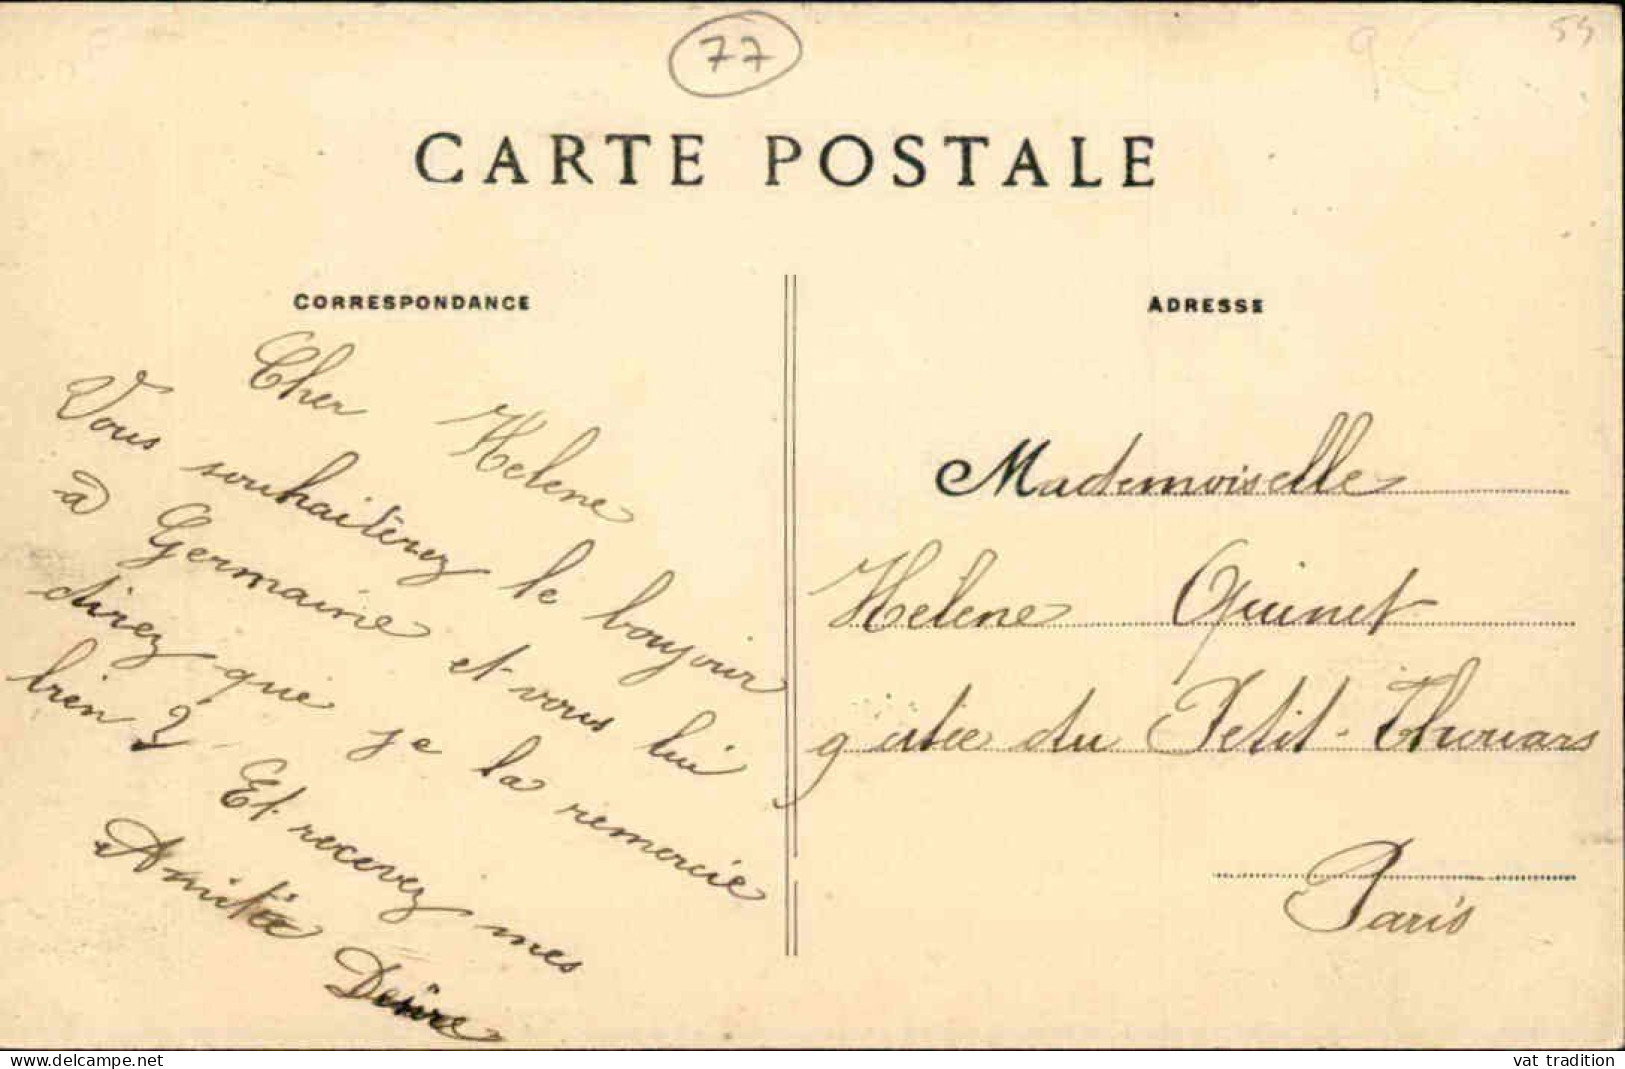 77
55
9
CARTE POSTALE
CORRESPONDANCE
Cher Helene
Vous souhaiterez le boujour
à Germaine et vous lui
direz que je la remercie
bien Et recevez mes
Amitée Desire
ADRESSE
Mademoiselle
Hélène Quinet
9 citée du Petit-Thouars
Paris
www.delcampe.net
vat tradition